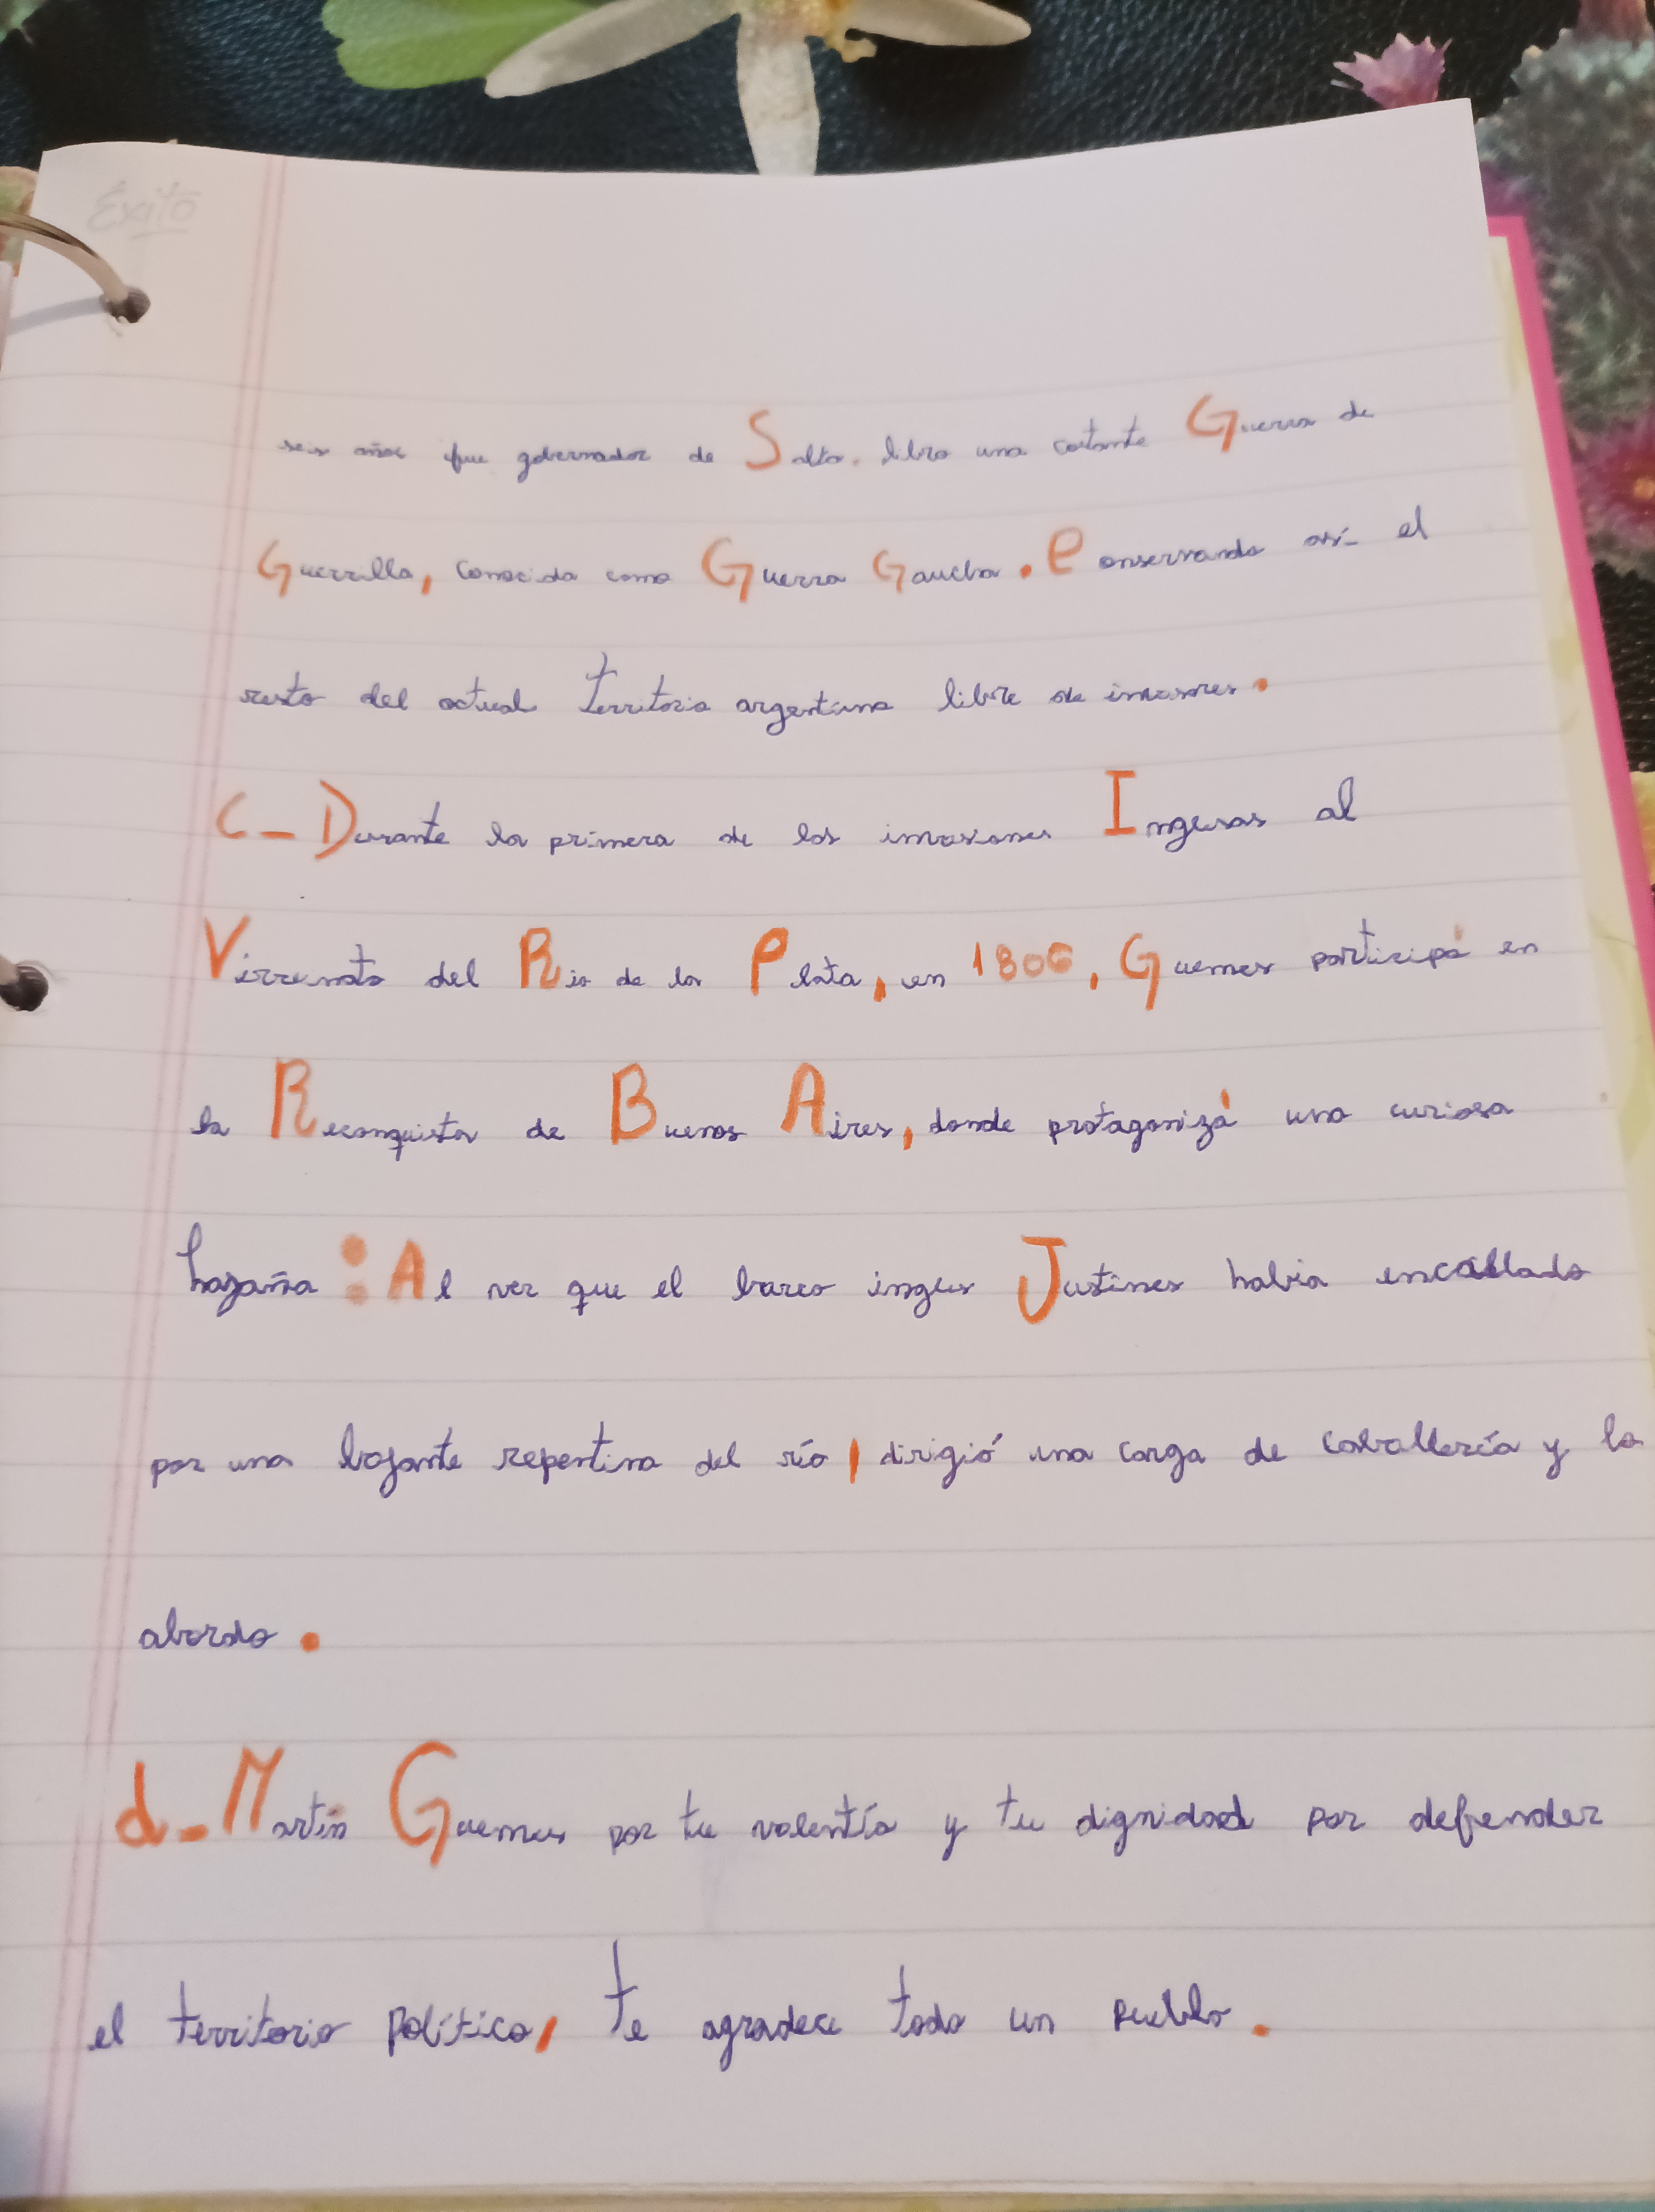 Éxito
seis años fue gobernador de Salta. libro una costante Guerra de
Guerrilla, conocida como Guerra Gaucha. Conservando así el
resto del actual territorio argentino libre de invasores.
C-Durante la primera de las invasiones Ingesas al
Virreinato del Rio de la Plata, en 1806, Guemes participó en
la Reconquista de Buenos Aires, donde protagonizó una curiosa
hazaña: Al ver que el barco inges Justines habia encallado
por una bajante repentina del río, dirigió una carga de caballería y lo
abordo.
d-Martín Guemes por tu valentía y tu dignidad por defender
el territorio político, te agradece todo un pueblo.